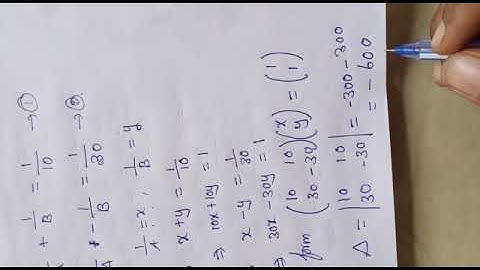 + 1/B = 1/10 → ①
- 1/B = 1/30 → ②
1/A = x, 1/B = y
x + y = 1/10
⇒ 10x + 10y = 1
x - y = 1/30
⇒ 30x - 30y = 1
form (10 10 / 30 -30)(x / y) = (1 / 1)
Δ = |10 10 / 30 -30| = -300 - 300
= -600